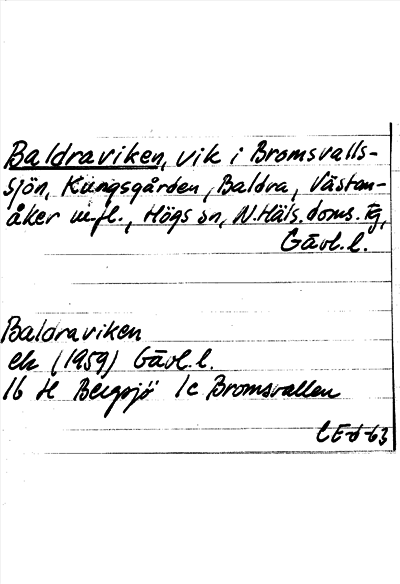 Baldraviken, vik i Bromsvalls-
sjön, Kungsgården, Baldra, Västan-
åker m.fl., Högs sn, N.Häls.doms. tg,
Gävl.l.
Baldraviken
ek (1959) Gävl.l.
16 H Bergsjö 1c Bromsvallen
CE-6-63